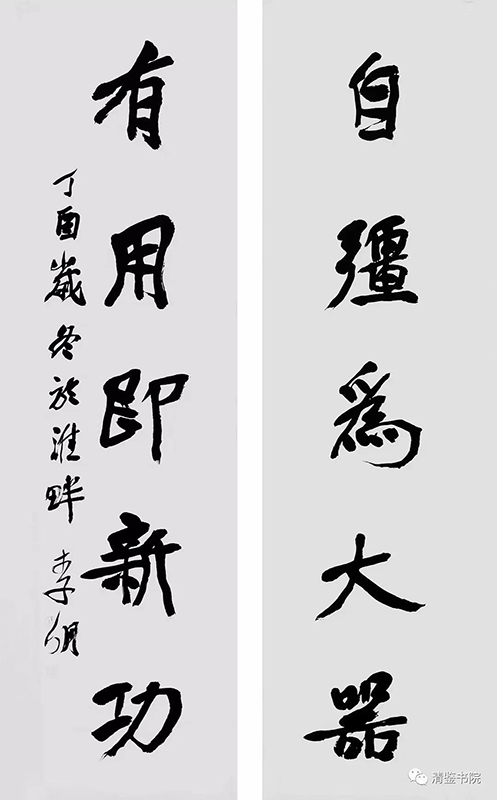 自彊為大器
有用即新功
丁酉歲冬於淮畔 李明
清鉴书院